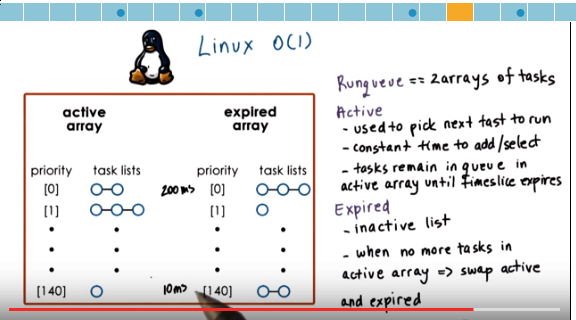 Linux O(1)
active array
expired array
priority task lists priority task lists
[0] 200ms [0]
[1] [1]
[140] 10ms [140]
Runqueue == 2 arrays of tasks
Active
- used to pick next tast to run
- constant time to add/select
- tasks remain in queue in
active array until timeslice expires
Expired
- inactive list
- when no more tasks in
active array => swap active
and expired